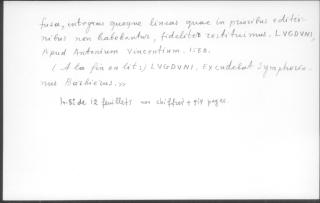 fusa, integras quoque lineas quae in prioribus editio-
nibus non habebantur, fideliter restituimus. LVGDVNI,
Apud Antonium Vincentium. 1558.
(A la fin on lit:) LVGDVNI. Excudebat Symphoria-
nus Barbierus. »
In-8° de 12 feuillets non chiffrés + 914 pages.